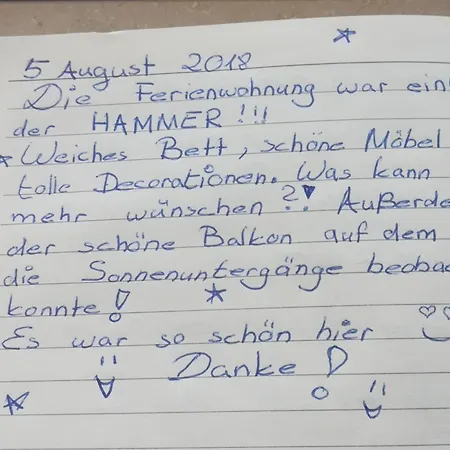 5 August 2018
Die Ferienwohnung war ein
der HAMMER!!!
Weiches Bett, schöne Möbel
tolle Decorationen. Was kann
mehr wünschen?! Außerde
der schöne Balkon auf dem
die Sonnenuntergänge beoba
konnte!
Es war so schön hier
Danke!